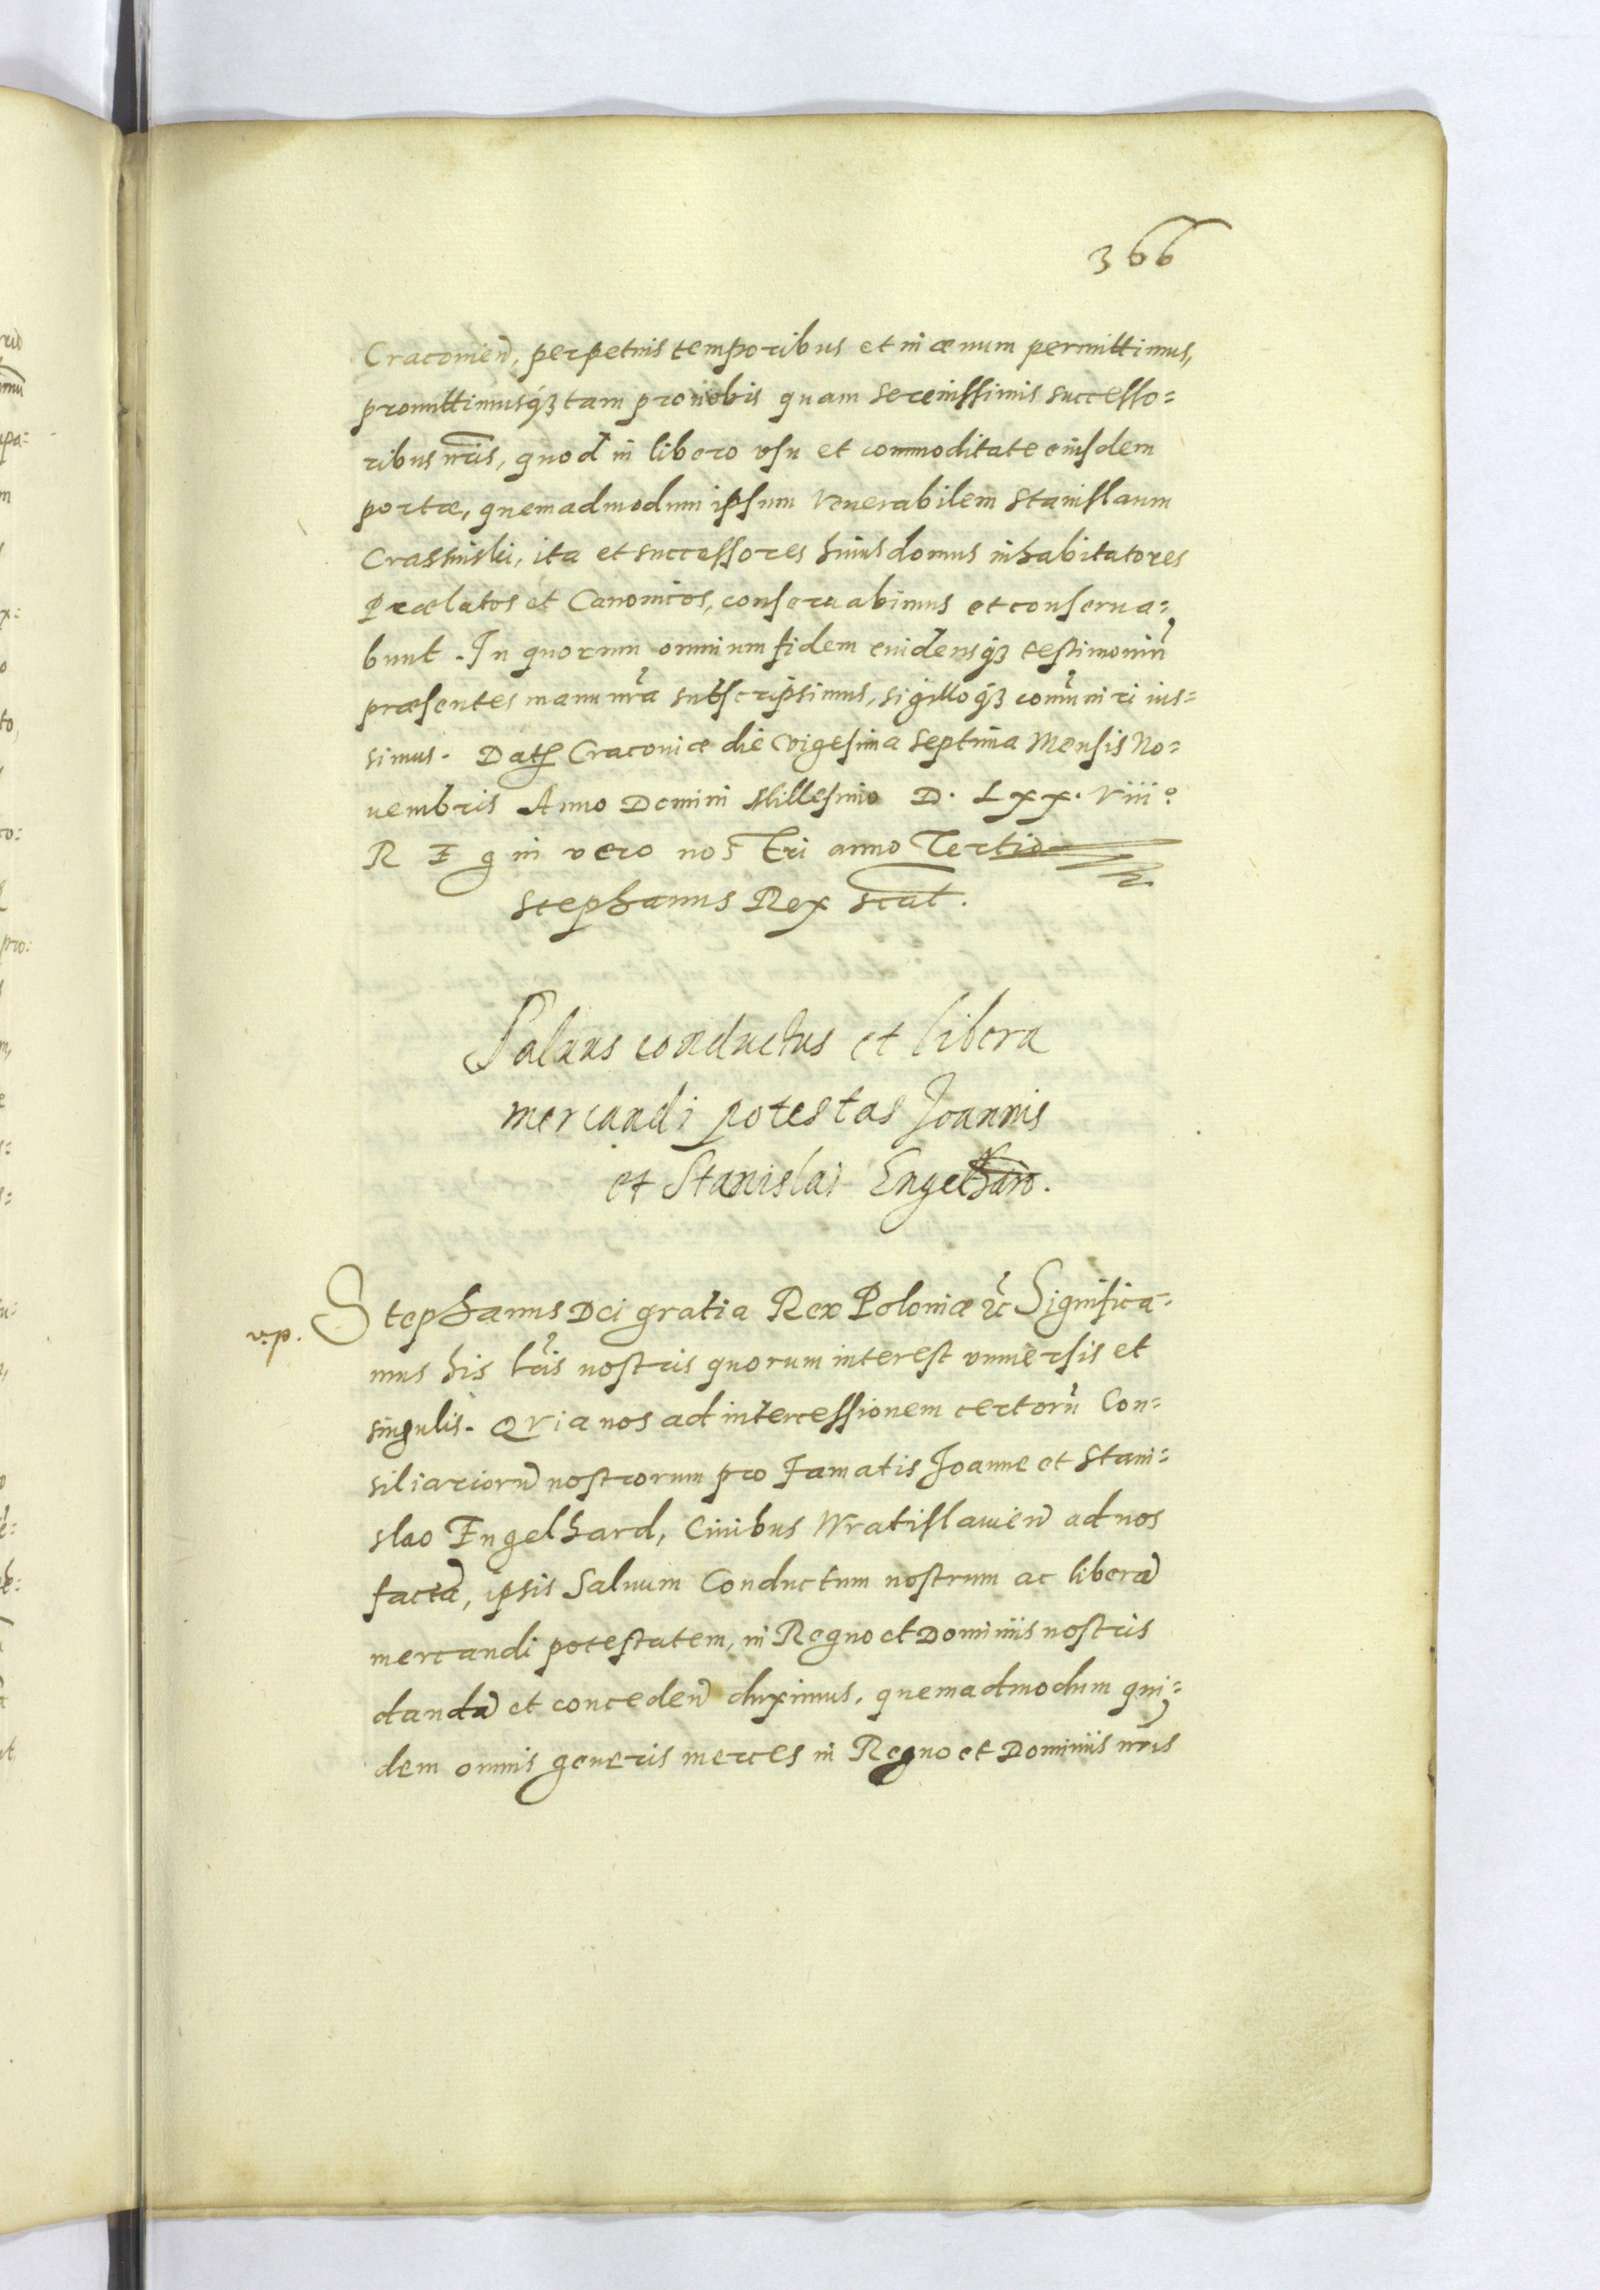 366
Cracouien̄, perpetuis temporibus et in æuum permittimus,
promittimusq́ꝫ tam pro nobis quam Serenissimis successo=
ribus nr̄is, quod in libero vsu et commoditate eiusdem
portæ, quemadmodum ipsum Venerabilem Stanislaum
Crassinski, ita et successores huius domus inhabitatores
Prælatos et Canonicos, conseruabimus et conserua=
bunt. In quorum omnium fidem euidensq́ꝫ testimoniū
præsentes manu nr̄a subscripsimus, sigilloq́ꝫ com̄uniri ius=
simus. Datꝭ Cracouiæ die Vigesima Septima Mensis No=
uembris Anno Domini Millesimo D. Lxx. Viiiº
REgni vero nostri anno Tertio
Stephanus Rex scat̄.
Saluus conductus et libera
mercandi potestas Joannis
et Stanislai Engelhard.
v.p.
Stephanus Dei gratia Rex Poloniæ ꝛc̄ Significa=
mus his lr̄is nostris quorum interest vniuersis et
singulis. QVia nos ad intercessionem certorū Con=
siliariorū nostrorum pro Famatis Joanne et Stani=
slao Engelhard, Ciuibus Wratislauien̄ ad nos
factā, ipsis Saluum Conductum nostrum ac liberā
mercandi potestatem, in Regno et Dominiis nostris
dandā et conceden̄ duximus, quemadmodum qui=
dem omnis generis merces in Regno et Dominiis nr̄is